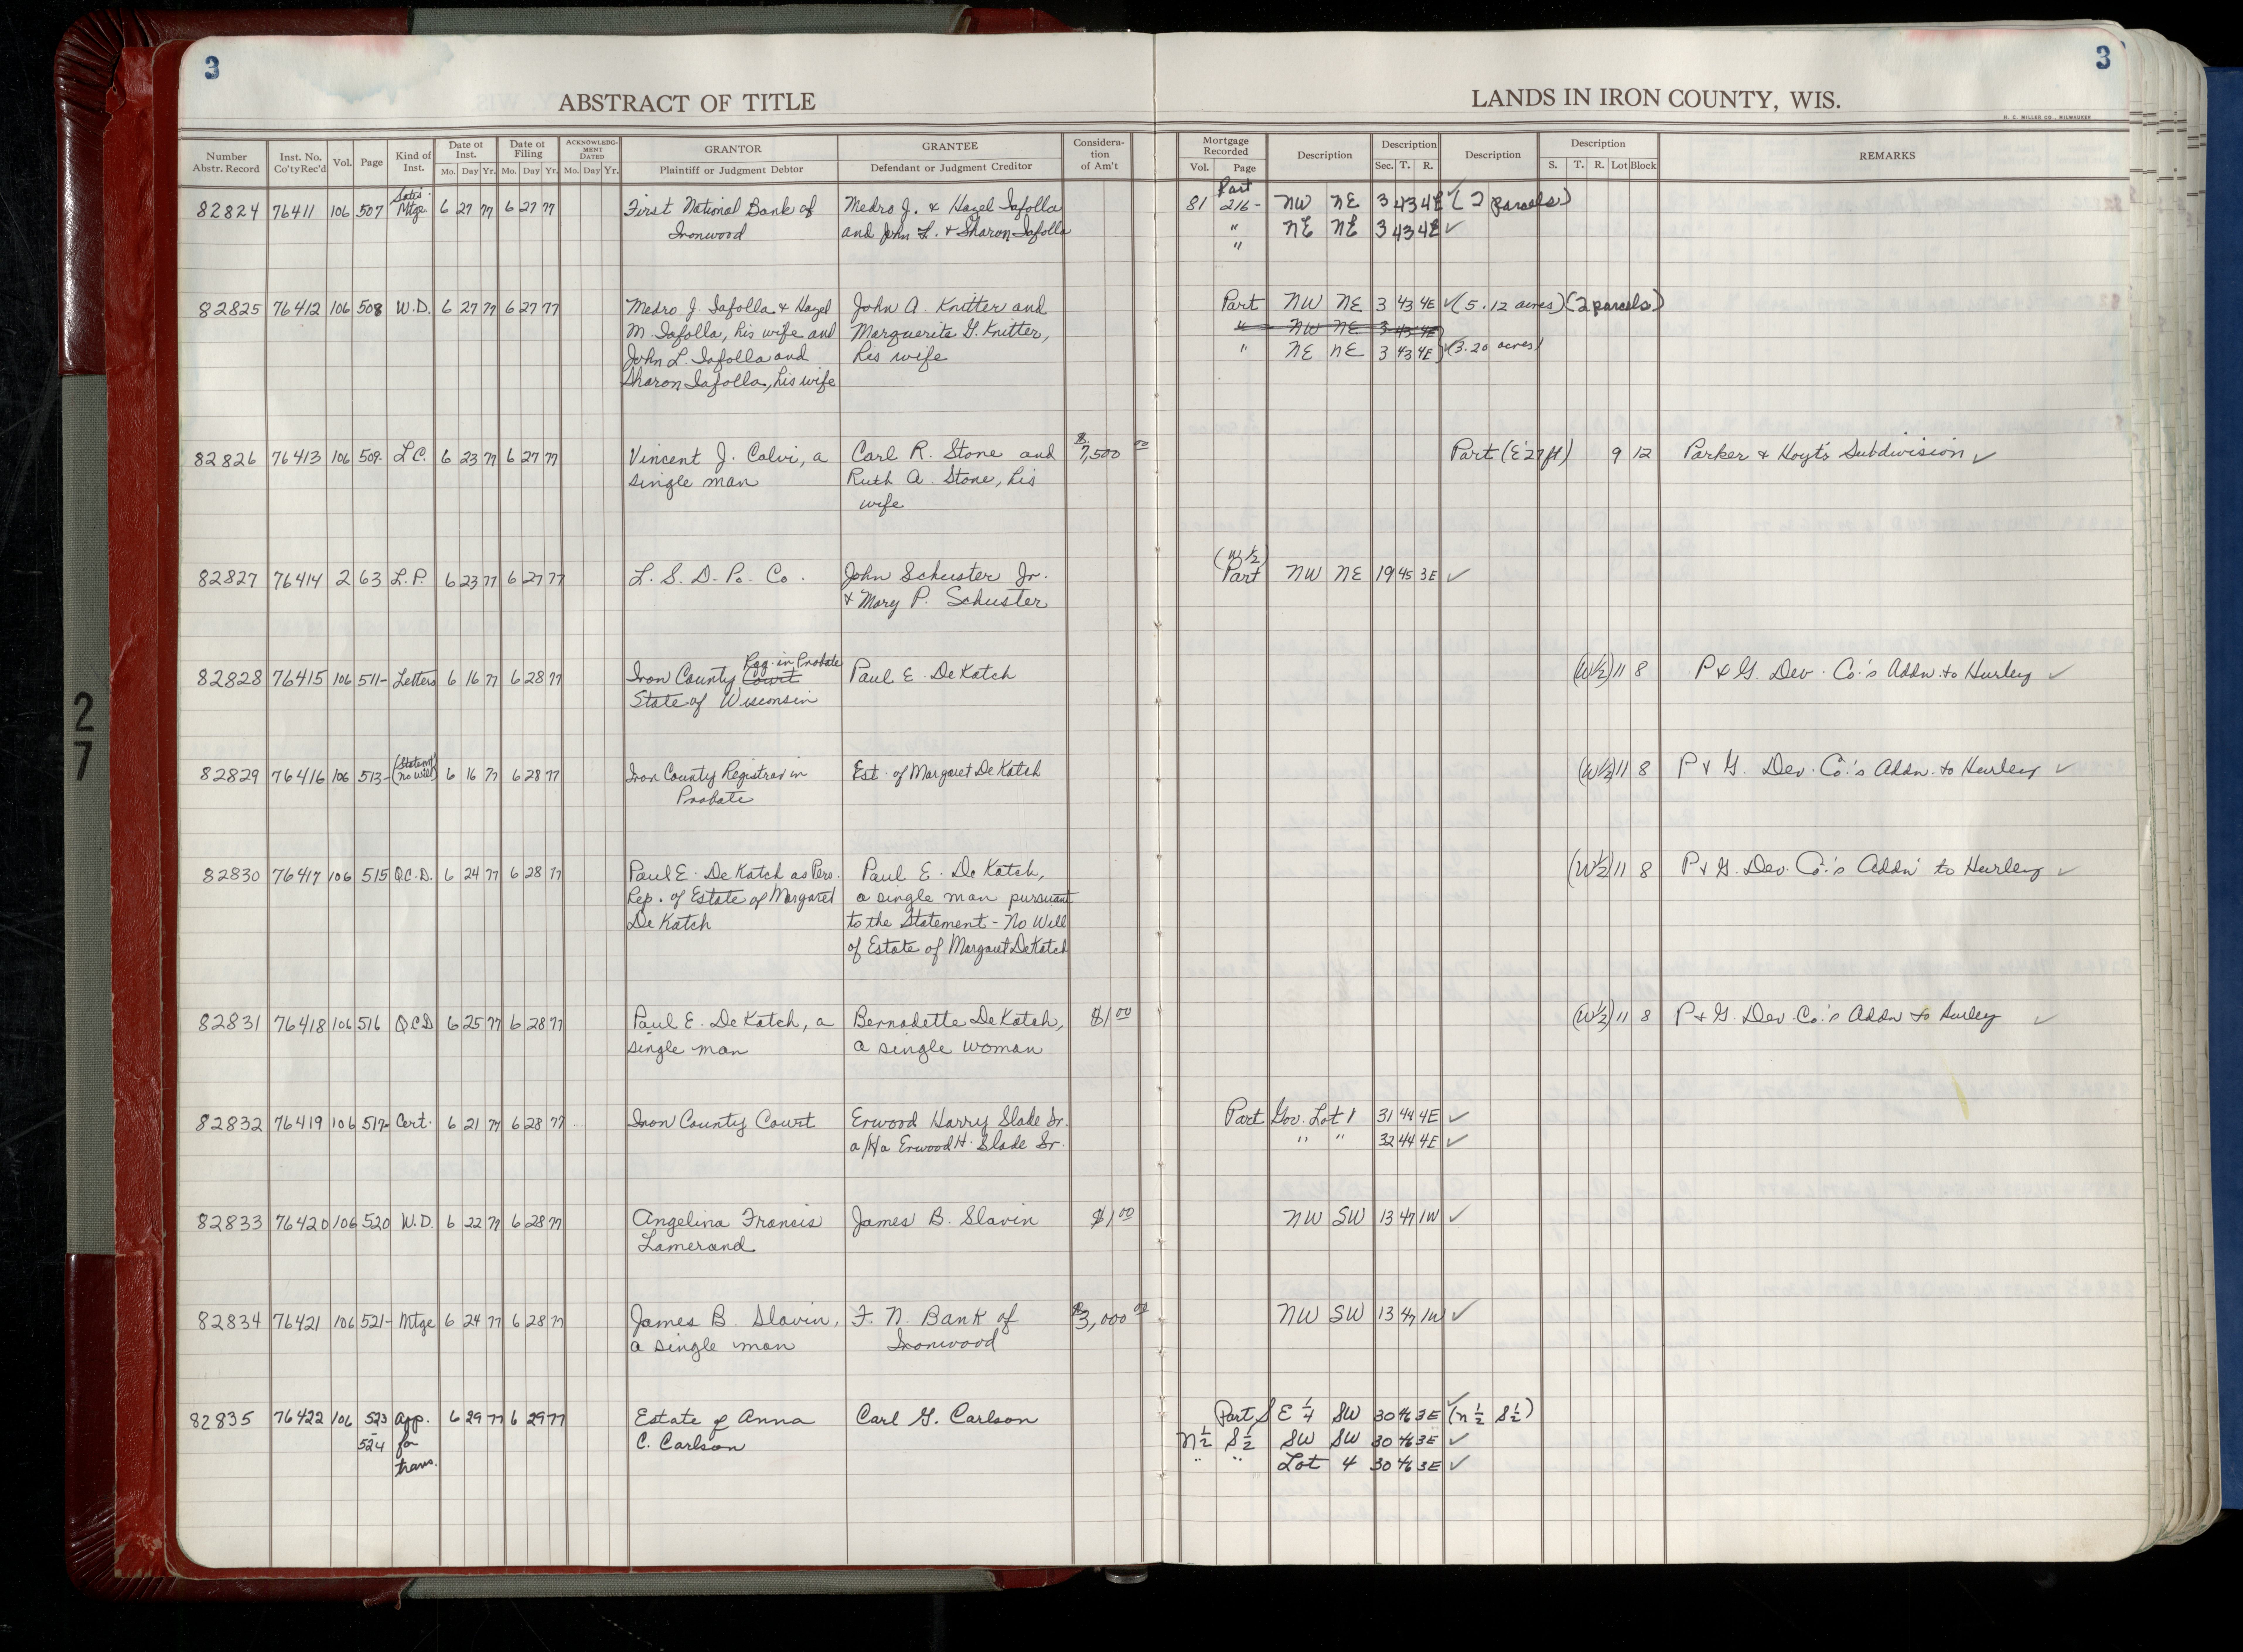 3
3
ABSTRACT OF TITLE
LANDS IN IRON COUNTY, WIS.
H. C. MILLER CO., MILWAUKEE
Number Abstr. Record Inst. No. Co'ty Rec'd Vol. Page Kind of Inst. Date of Inst. Mo. Day Yr. Date of Filing Mo. Day Yr. ACKNOWLEDGMENT DATED Mo. Day Yr. GRANTOR Plaintiff or Judgment Debtor GRANTEE Defendant or Judgment Creditor Consideration of Am't Mortgage Recorded Vol. Page Description Description Sec. T. R. Description Description S. T. R. Lot Block REMARKS
Satis. Part
82824 76411 106 507 Mtge. 6 27 77 6 27 77 First National Bank of Medro J. & Hazel Iafolla 81 216- NW NE 3 43 4E ✓ (2 parcels)
Ironwood and John L. & Sharon Iafolla " NE NE 3 43 4E ✓
"
82825 76412 106 508 W.D. 6 27 77 6 27 77 Medro J. Iafolla & Hazel John A. Knitter and Part NW NE 3 43 4E ✓ (5.12 acres) (2 parcels)
M. Iafolla, his wife and Marguerite G. Knitter, " NW NE 3 43 4E
John L. Iafolla and his wife " NE NE 3 43 4E ✓ (3.20 acres)
Sharon Iafolla, his wife
82826 76413 106 509- L.C. 6 23 77 6 27 77 Vincent J. Calvi, a Carl R. Stone and $7,500 00 Part (E'27 ft) 9 12 Parker & Hoyt's Subdivision ✓
single man Ruth A. Stone, his
wife
(N 1/2)
82827 76414 2 63 L.P. 6 23 77 6 27 77 L. S. D. Po. Co. John Schuster Jr. Part NW NE 19 45 3E ✓
& Mary P. Schuster
Reg. in Probate
82828 76415 106 511- Letters 6 16 77 6 28 77 Iron County Court Paul E. DeKatch (W1/2) 11 8 P & G. Dev. Co.'s Addn. to Hurley ✓
State of Wisconsin
(Statemt
82829 76416 106 513- no will) 6 16 77 6 28 77 Iron County Registrar in Est. of Margaret DeKatch (W1/2) 11 8 P & G. Dev. Co.'s Addn. to Hurley ✓
Probate
82830 76417 106 515 Q.C.D. 6 24 77 6 28 77 Paul E. DeKatch as Pers. Paul E. DeKatch, (W1/2) 11 8 P & G. Dev. Co.'s Addn to Hurley ✓
Rep. of Estate of Margaret a single man pursuant
DeKatch to the Statement - No Will
of Estate of Margaret DeKatch
82831 76418 106 516 QCD 6 25 77 6 28 77 Paul E. DeKatch, a Bernadette DeKatch, $1 00 (W1/2) 11 8 P & G. Dev. Co.'s Addn to Hurley ✓
single man a single woman
82832 76419 106 517- Cert. 6 21 77 6 28 77 Iron County Court Erwood Harry Slade Sr. Part Gov. Lot 1 31 44 4E ✓
a/k/a Erwood H. Slade Sr. " " 32 44 4E ✓
82833 76420 106 520 W.D. 6 22 77 6 28 77 Angelina Francis James B. Slavin $1 00 NW SW 13 47 1W ✓
Lamerand
82834 76421 106 521- Mtge 6 24 77 6 28 77 James B. Slavin, F. N. Bank of $3,000 00 NW SW 13 47 1W ✓
a single man Ironwood
82835 76422 106 523 App. 6 29 77 6 29 77 Estate of Anna Carl G. Carlson Part SE 1/4 SW 30 46 3E ✓ (N 1/2 S 1/2)
- 524 for C. Carlson N 1/2 S 1/2 SW SW 30 46 3E ✓
trans. " " Lot 4 30 46 3E ✓
27